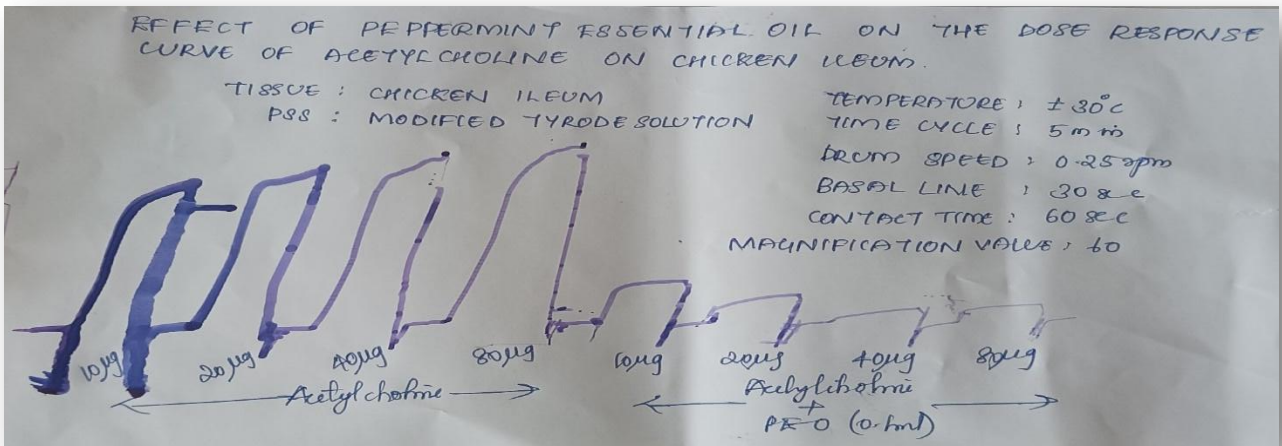 EFFECT OF PEPPERMINT ESSENTIAL OIL ON THE DOSE RESPONSE
CURVE OF ACETYLCHOLINE ON CHICKEN ILEUM.
TISSUE : CHICKEN ILEUM
PSS : MODIFIED TYRODE SOLUTION
TEMPERATURE : ± 30°C
TIME CYCLE : 5 min
DRUM SPEED : 0.25 rpm
BASAL LINE : 30 sec
CONTACT TIME : 60 sec
MAGNIFICATION VALUE :
10µg 20µg 40µg 80µg 10µg 20µg 40µg 80µg
Acetylcholine Acetylcholine
+
PEO